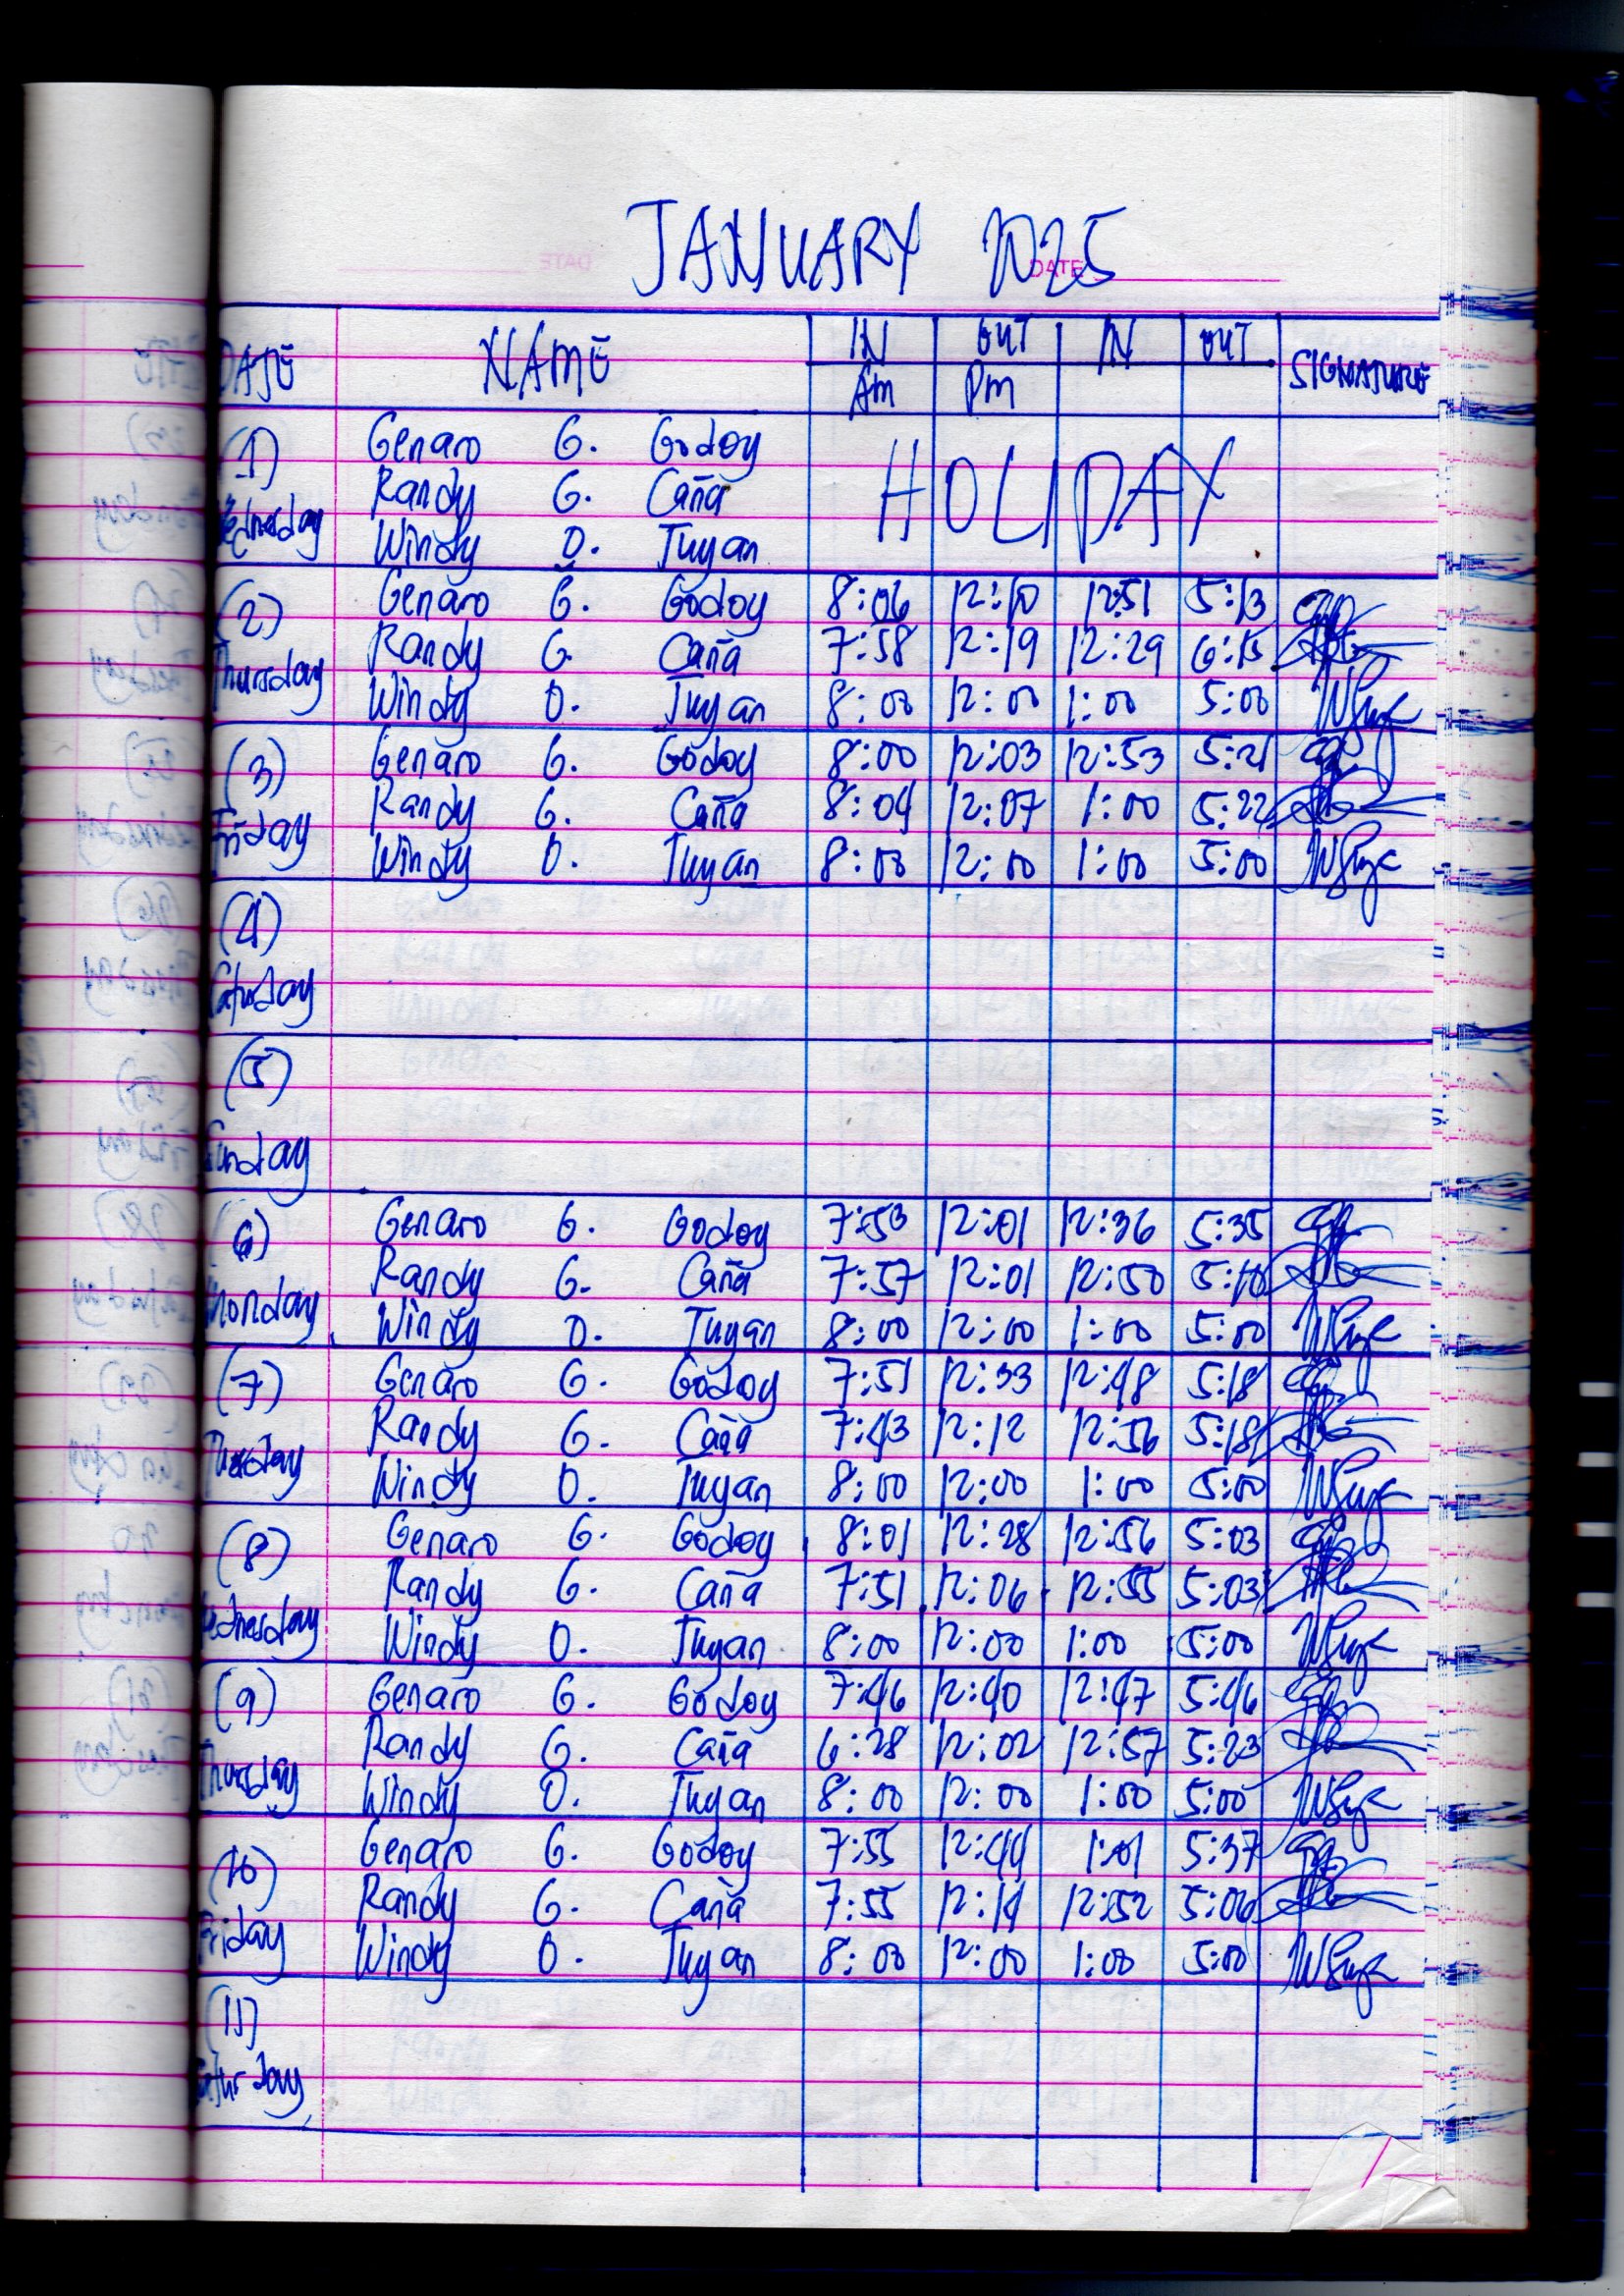 JANUARY 2025
DATE
DATE NAME IN OUT IN OUT SIGNATURE
Am Pm
(1) Genaro G. Godoy HOLIDAY
Randy G. Caña
Wednesday Windy D. Tuyan
(2) Genaro G. Godoy 8:06 12:10 12:51 5:13
Randy G. Caña 7:58 12:19 12:29 6:15
Thursday Windy D. Tuyan 8:00 12:00 1:00 5:00
(3) Genaro G. Godoy 8:00 12:03 12:53 5:21
Randy G. Caña 8:04 12:07 1:00 5:22
Friday Windy D. Tuyan 8:00 12:00 1:00 5:00
(4)
Saturday
(5)
Sunday
(6) Genaro G. Godoy 7:53 12:01 12:36 5:35
Randy G. Caña 7:57 12:01 12:50 5:10
Monday Windy D. Tuyan 8:00 12:00 1:00 5:00
(7) Genaro G. Godoy 7:51 12:33 12:48 5:18
Randy G. Caña 7:43 12:12 12:56 5:18
Tuesday Windy D. Tuyan 8:00 12:00 1:00 5:00
(8) Genaro G. Godoy 8:01 12:28 12:56 5:03
Randy G. Caña 7:51 12:06 12:55 5:03
Wednesday Windy D. Tuyan 8:00 12:00 1:00 5:00
(9) Genaro G. Godoy 7:46 12:40 12:47 5:46
Randy G. Caña 6:28 12:02 12:57 5:23
Thursday Windy D. Tuyan 8:00 12:00 1:00 5:00
(10) Genaro G. Godoy 7:55 12:44 1:01 5:37
Randy G. Caña 7:55 12:14 12:52 5:06
Friday Windy D. Tuyan 8:00 12:00 1:00 5:00
(11)
Saturday